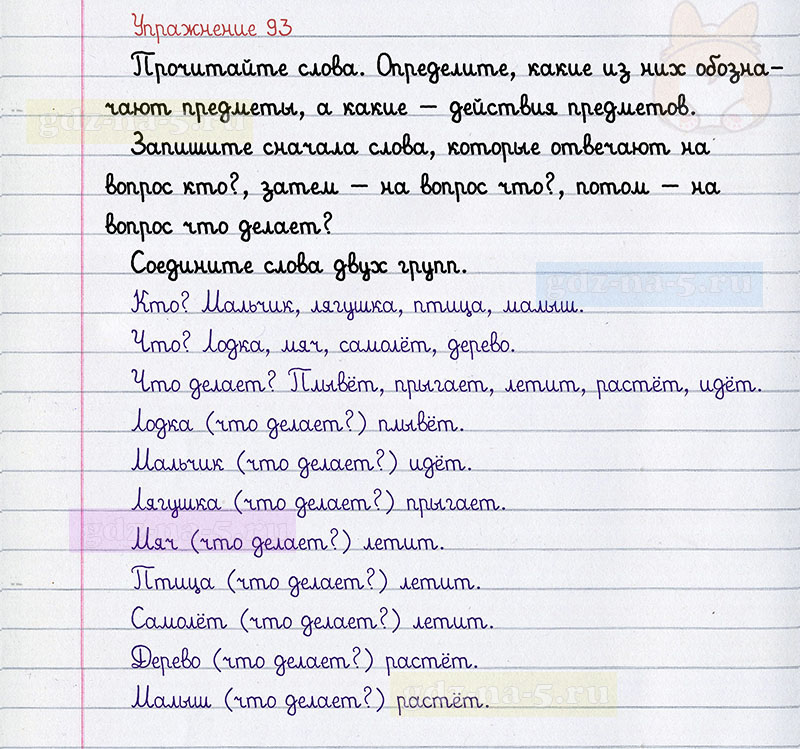 Упражнение 93
Прочитайте слова. Определите, какие из них обозна-
чают предметы, а какие — действия предметов.
gdz-na-5.ru
Запишите сначала слова, которые отвечают на
вопрос кто?, затем — на вопрос что?, потом — на
вопрос что делает?
Соедините слова двух групп.
gdz-na-5.ru
Кто? Мальчик, лягушка, птица, малыш.
Что? Лодка, мяч, самолёт, дерево.
Что делает? Плывёт, прыгает, летит, растёт, идёт.
Лодка (что делает?) плывёт.
Мальчик (что делает?) идёт.
Лягушка (что делает?) прыгает.
gdz-na-5.ru
Мяч (что делает?) летит.
Птица (что делает?) летит.
Самолёт (что делает?) летит.
Дерево (что делает?) растёт.
gdz-na-5.ru
Малыш (что делает?) растёт.